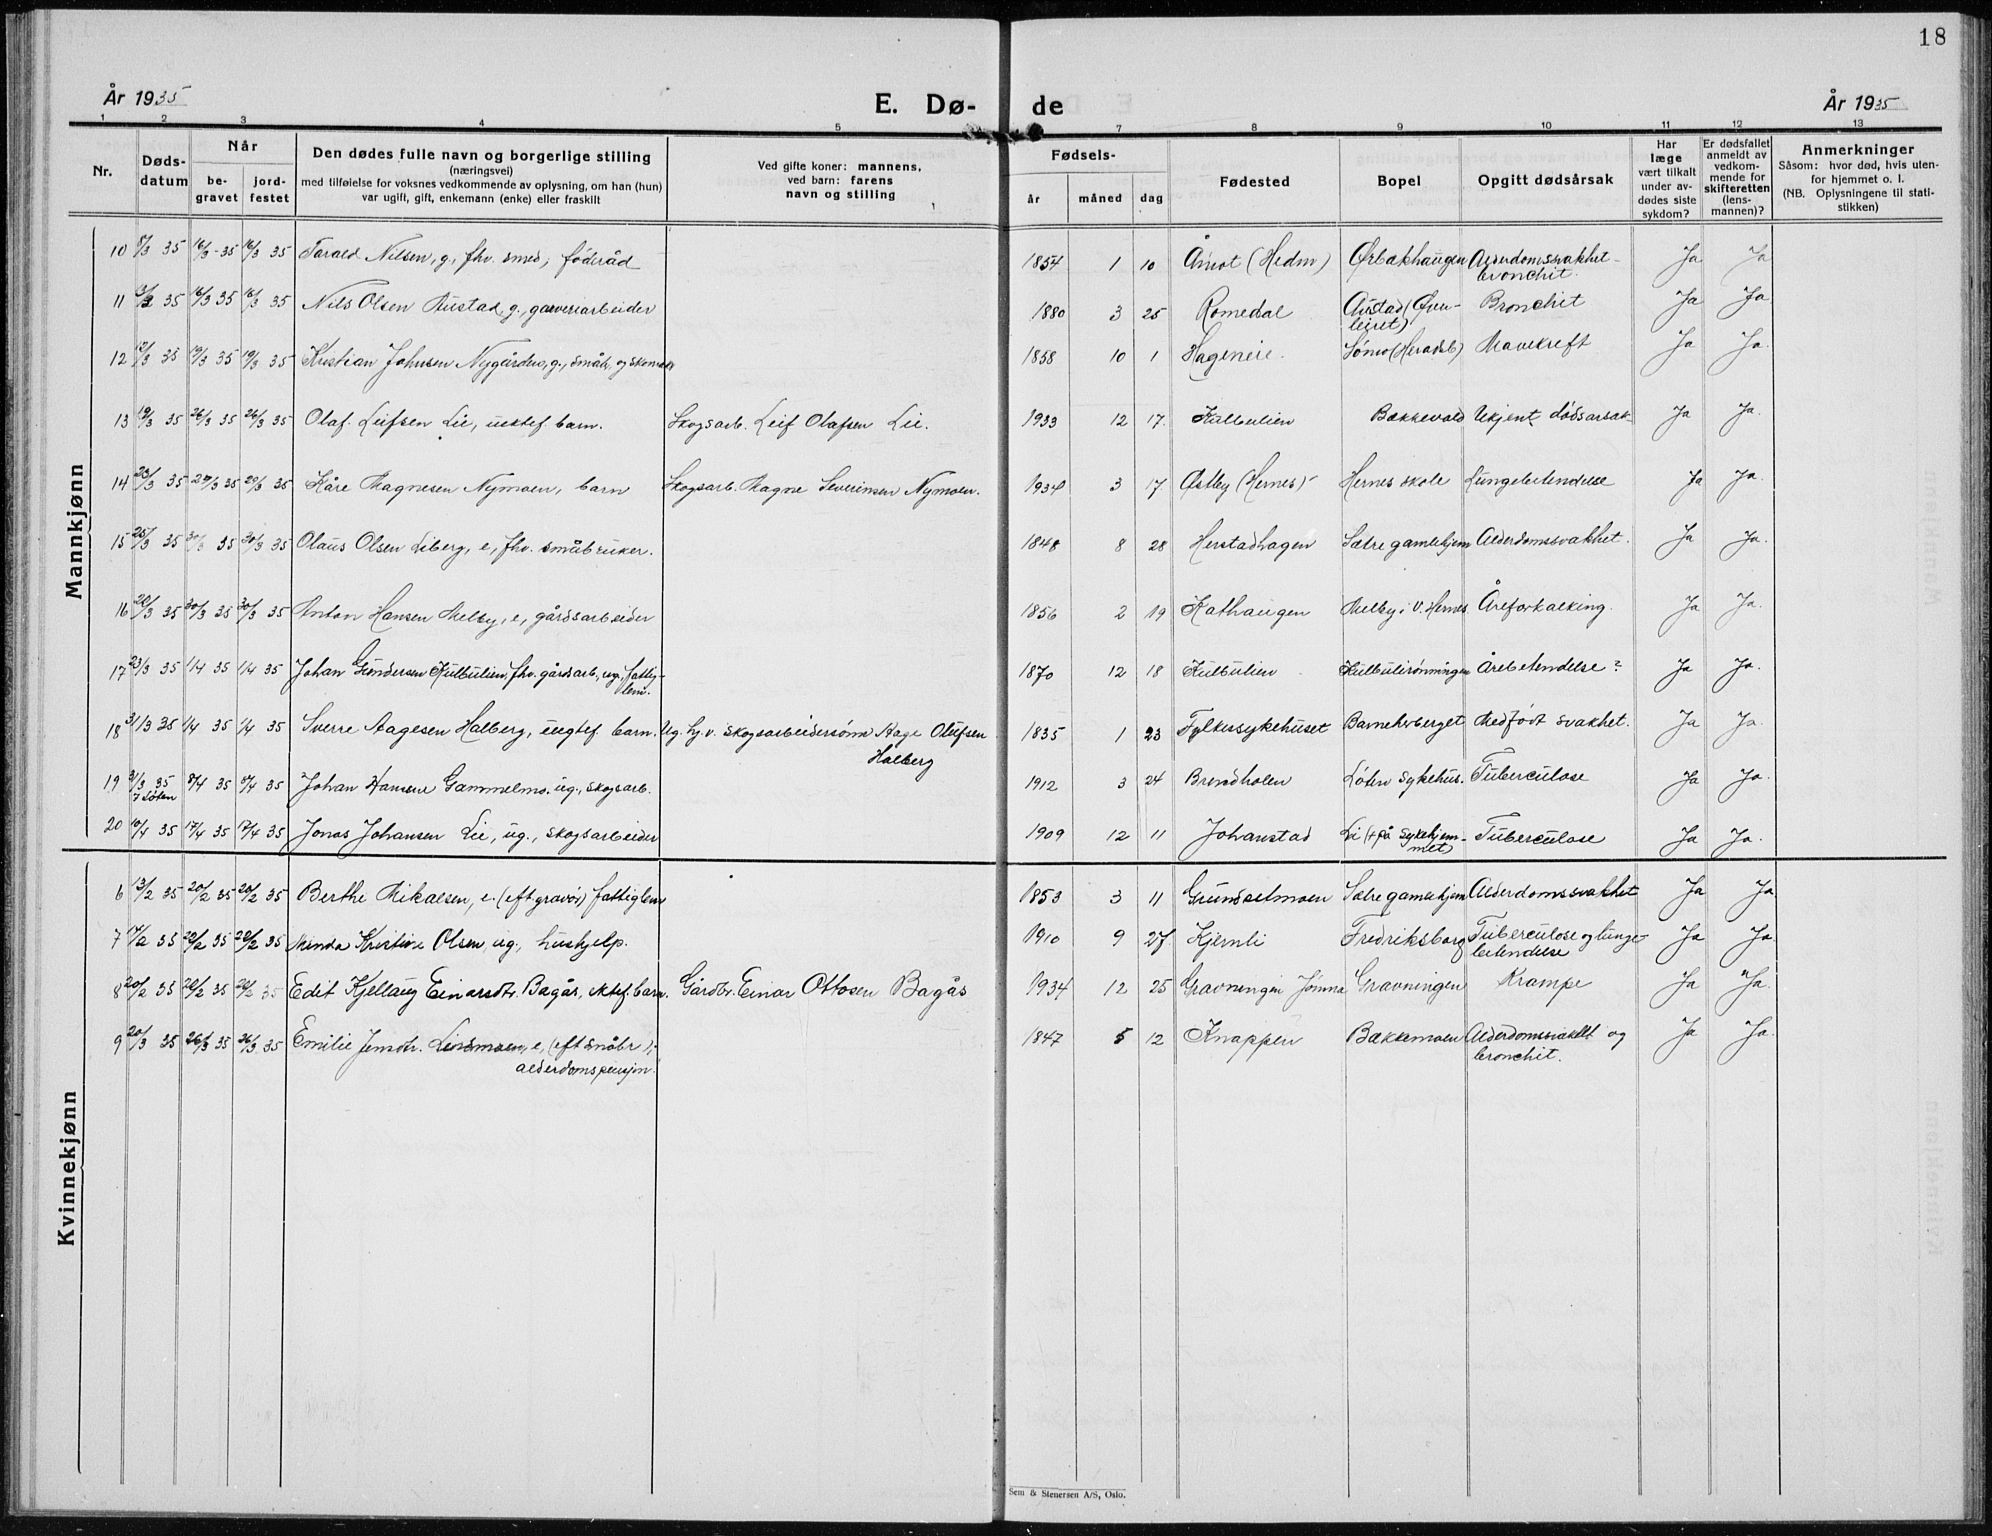 18
År 1935 E. Dø- de År 1935
1 2 3 4 5 7 8 9 10 11 12 13
Nr. Døds-datum Når be-gravet jord-festet Den dødes fulle navn og borgerlige stilling (næringsvei) med tilføielse for voksnes vedkommende av oplysning, om han (hun) var ugift, gift, enkemann (enke) eller fraskilt Ved gifte koner: mannens, ved barn: farens navn og stilling Fødsels- år måned dag Fødested Bopel Opgitt dødsårsak Har læge vært tilkalt under av-dødes siste sykdom? Er dødsfallet anmeldt av vedkom-mende for skifteretten (lens-mannen)? Anmerkninger Såsom: hvor død, hvis uten-for hjemmet o. l. (NB. Oplysningene til stati-stikken)
Mannkjønn
10 8/3 35 16/3 35 16/3 35 Tarald Nilsen, g., fhv. smed, föderåd 1854 1 10 Åmot (Hedm) Ørbakhaugen Alderdomssvakhet - bronchit. Ja Ja
11 35 16/3 35 16/3 35 Nils Olsen Austad, g., garveriarbeider 1880 3 25 Romedal Austad (Øver-leiret) Bronchit Ja Ja
12 12/3 35 19/3 35 19/3 35 Kristian Johnsen Nygården, g., småbr. og skomak 1858 10 1 Hageneie. Sønso (Heradsb) Mavekreft Ja Ja.
13 19/3 35 26/3 35 26/3 35 Olaf Leifsen Lie, uektef barn. Skogsarb. Leif Olafsen Lie. 1933 12 17. Kulbulien Bækkevold Ukjent dødsarsak Ja Ja.
14 23/3 35 29/3 35 29/3 35 Kåre Magnesen Nymoen, barn Skogsarb. Magne Severinsen Nymoen. 1934 3 17 Østby (Hernes) Hernes skole Lungebetendelse Ja Ja.
15 25/3 35 30/3 35 30/3 35 Olaus Olsen Liberg, e, fhv. småbruker. 1848 8 28 Herstadhagen Sætre gamlehjem Alderdomssvakhet. Ja Ja.
16 35 30/3 35 30/3 35 Anton Hansen Melby, e, gårdsarbeider 1856 2 19 Kathaugen Melby i V. Hernes Åreforkalking. Ja Ja.
17 23/3 35 1/4 35 1/4 35 Johan Gundersen Kulbulien, fhv. gårdsarb, ug., fattig-lem. 1870 12 18 Kulbulien Kulbulirønningen Årebetendelse? Ja Ja.
18 31/3 35 1/4 35 1/4 35 Sverre Aagesen Halberg, uegtef barn. Ug. Lg. v. skogsarbeidersønn Aage Olufsen Halberg 1835 1 23 Fylkessykehuset Barnehvberget Medfödt svakhet. Ja Ja.
19 31/3 35 i Löten 8/4 35 8/4 35 Johan Hansen Gammelmo. ug., skogsarb. 1912 3 24 Brendholen Löten sykehus. Tuberculose Ja Ja.
20 10/4 35 17/4 35 17/4 35 Jonas Johansen Lie, ug., skogsarbeider 1909 12 11 Johanstad Li (+ på sykehjem-met) Tuberculose Ja Ja.
Kvinnekjønn
6 13/2 35 20/2 35 20/2 35 Berthe Mikalsen, e. (eft gravör) fattiglem 1853 3 11 Grundsetmoen Sætre gamlehjem Alderdomssvakhet Ja Ja
7 14/2 35 20/2 35 20/2 35 Minda Kristine Olsen, ug., hushjelp. 1910 9 27. Kjernli Fredriksborg Tuberculose og lunge-betendelse Ja Ja.
8 20/2 35 35 35 Edit Kjellaug Einarsdtr. Bagås, ektef. barn. Gårdbr. Einar Ottosen Bagås 1934 12 25 Gravningen Jömna Gravningen Krampe Ja Ja.
9 20/3 35 26/3 35 26/3 35 Emilie Jensdtr. Linsmoen, e, (eft småbr.), alderdomspensjon. 1847 5 12 Knappen Bækkemoen Alderdomssvakht og bronchit. Ja Ja.
Sem & Stenersen A/S, Oslo.